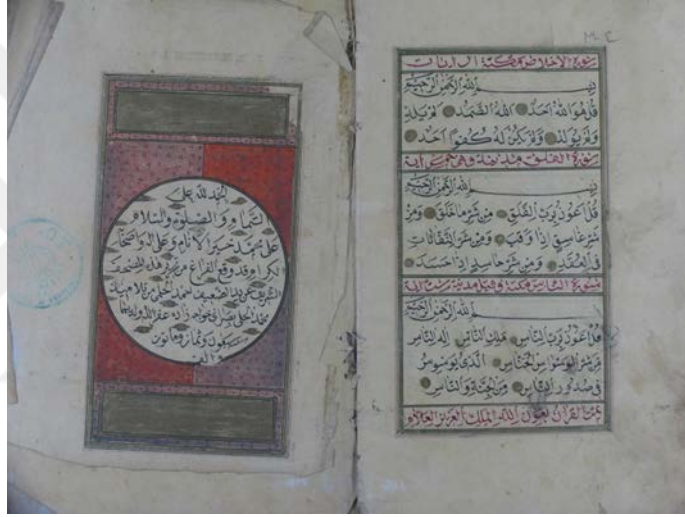 سورة الاخلاص مكية اربع ايات
بسم الله الرحمن الرحيم
قل هو الله احد الله الصمد لم يلد
ولم يولد ولم يكن له كفوا احد
سورة الفلق مدنية وهى خمس اية
بسم الله الرحمن الرحيم
قل اعوذ برب الفلق من شر ما خلق ومن
شر غاسق اذا وقب ومن شر النفاثات
فى العقد ومن شر حاسد اذا حسد
سورة الناس
بسم الله الرحمن الرحيم
قل اعوذ برب الناس ملك الناس اله الناس
من شر الوسواس الخناس الذى يوسوس
فى صدور الناس من الجنة والناس
تم القران بعون الله الملك العزيز العلام
الحمد لله على
التمام والصلوة والسلام
على محمد خير الانام وعلى اله واصحابه
الكرام وقد وقع الفراغ من تحرير هذا المصحف
الشريف عن يد الضعيف
غفر الله ولوالديهما
والف